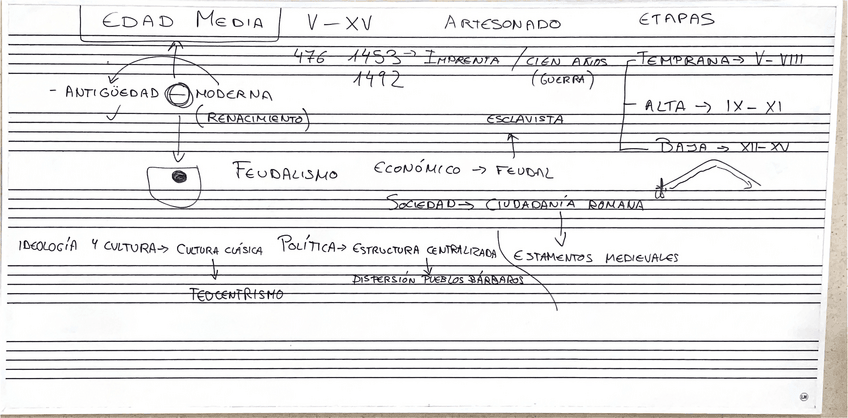 EDAD MEDIA V-XV ARTESONADO ETAPAS
476 1453→ IMPRENTA / CIEN AÑOS
1492 (GUERRA)
TEMPRANA→ V-VIII
- ANTIGÜEDAD - MODERNA
(RENACIMIENTO)
ALTA → IX-XI
ESCLAVISTA
BAJA → XII-XV
FEUDALISMO ECONÓMICO → FEUDAL
SOCIEDAD→ CIUDADANÍA ROMANA
IDEOLOGÍA Y CULTURA→ CULTURA CLÁSICA POLÍTICA→ ESTRUCTURA CENTRALIZADA ESTAMENTOS MEDIEVALES
TEOCENTRISMO DISPERSIÓN PUEBLOS BÁRBAROS